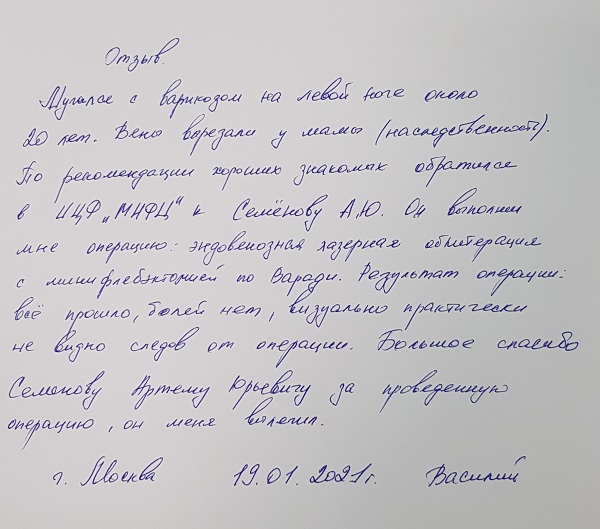 Отзыв.
Мучался с варикозом на левой ноге около
20 лет. Вены вырезали у мамы (наследственность).
По рекомендации хороших знакомых обратился
в ИЦФ „МИФЦ“ к Семёнову А.Ю. Он выполнил
мне операцию: эндовенозная лазерная облитерация
с минифлебэктомией по Варади. Результат операции:
всё прошло, болей нет, визуально практически
не видно следов от операции. Большое спасибо
Семенову Артему Юрьевичу за проведенную
операцию, он меня вылечил.
г. Москва 19.01.2021г. Василий